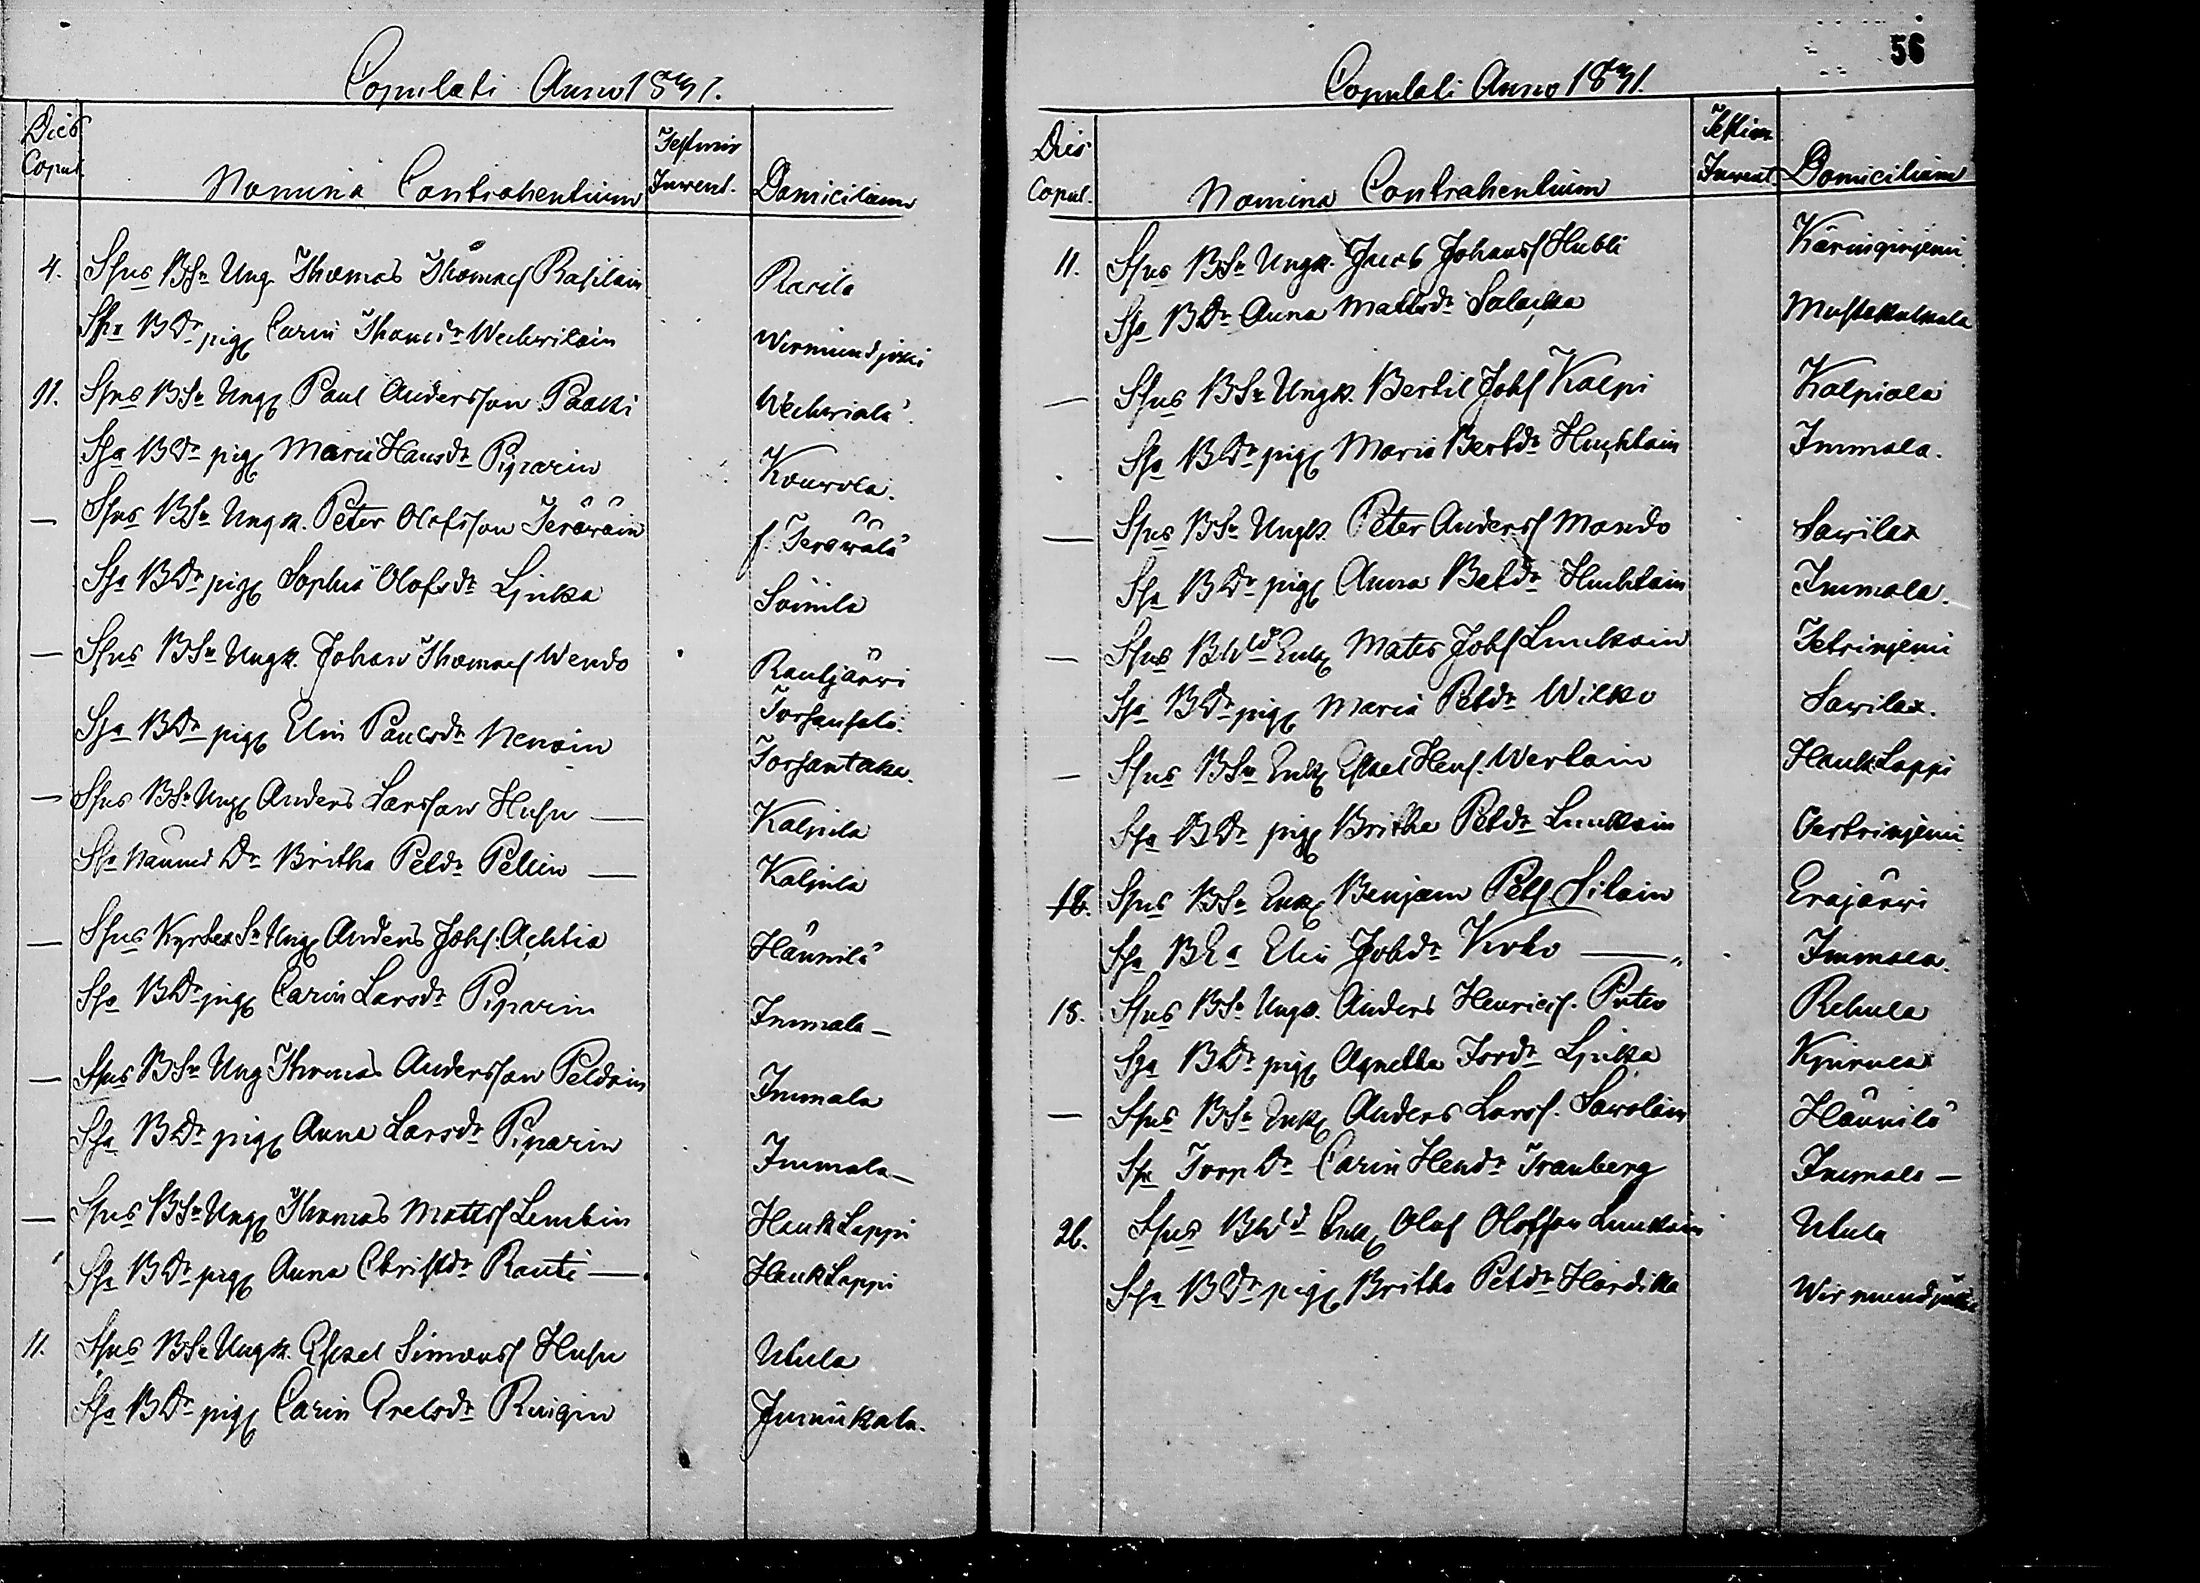 Copulati Anno 1831.
Dies Copul. Nomina Contrahentium Testim. Inwent. Domicilium
4. Spus BSn Ung Thomas Thomæs Rasilain Rasila
Spa BDr pig Carin Thomdr Wechwilain Wirmundjoki
11. Spus BSn Ung Paul Andersson Paaki Wechwiala
Spa BDr pig Maria Hansdr Piparin Kourola.
— Spus BSn Ungk. Peter Olofsson Teräwäin f. Teräwälä
Spa BDr pig Sophia Olofsdr Ljukka Soimila
— Spus BSn Ungk. Johan Thomæs Wendo Rautjärwi Torsansalo.
Spa BDr pig Elin Paulsdr Nenoin Torsantaka.
— Spus BSn Ung Anders Larsson Husu — Kalpila
Spa Nämnd Dr Britha Petdr Pellin — Kalpila
— Spus Kyrkex Sn Ung Anders Johs. Achtia Hännilä
Spa BDr pig Carin Larsdr Piparin Immala —
— Spus BSn Ung Thomas Andersson Peldoin Immala
Spa BDr pig Anna Larsdr Piparin Immala —
— Spus BSn Ung Thomas Matts Lembin Hauklappi
Spa BDr pig Anna Christdr Rauti — Hauklappi
11. Spus BSn Ungk. Eskel Simons Husu Utula
Spa BDr pig Carin Grelsdr Ruigin
56
Copulati Anno 1831.
Dies Copul. Nomina Contrahentium Testim. Inwent. Domicilium
11. Spus BSn Ungk. Jacob Johans Hubli Käringinjemi
Spa BDr Anna Mattsdr Salacka
— Spus BSn Ungk. Bertil Johs Kalpi Kalpiala
Spa BDr pig Maria Bertdr Huchtain Immala.
— Spus BSn Ungk. Peter Anders Mando Sawilax
Spa BDr pig Anna Betdr Huchtain Immala.
— Spus BWld Enk Mats Johs Luukain Petrinjemi
Spa BDr pig Maria Petdr Wilko Sawilax.
— Spus BSn Enk Eskel Hens. Wertain Hauklappi
Spa BDr pig Britha Petdr Luukain
18. Spus BSn Enk Benjam Pets Silain Eräjärwi
Spa BEa Elin Johdr Koko — Immala.
18. Spus BSn Ungk. Anders Henrics. Puto Rehula
Spa BDr pig Agnetha Tordr Ljukka
— Spus BSn Enk Anders Lars. Sawolain Hännilä
Spa Torp Dr Carin Hendr Tranberg Immala —
26. Spus BWld Enk Olof Olofsson Luukain Utula
Spa BDr pig Britha Petdr Hardikka Wirmundjoki